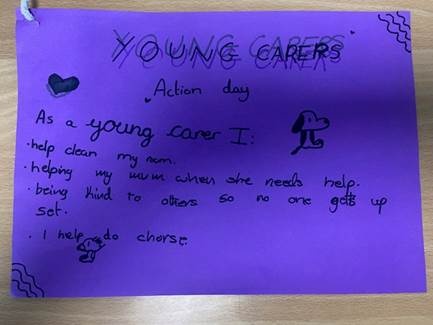 YOUNG CARERS
Action day
As a young carer I:
• help clean my room.
• helping my mum when she needs help.
• being kind to others so no one gets up
set.
• I help do chorse